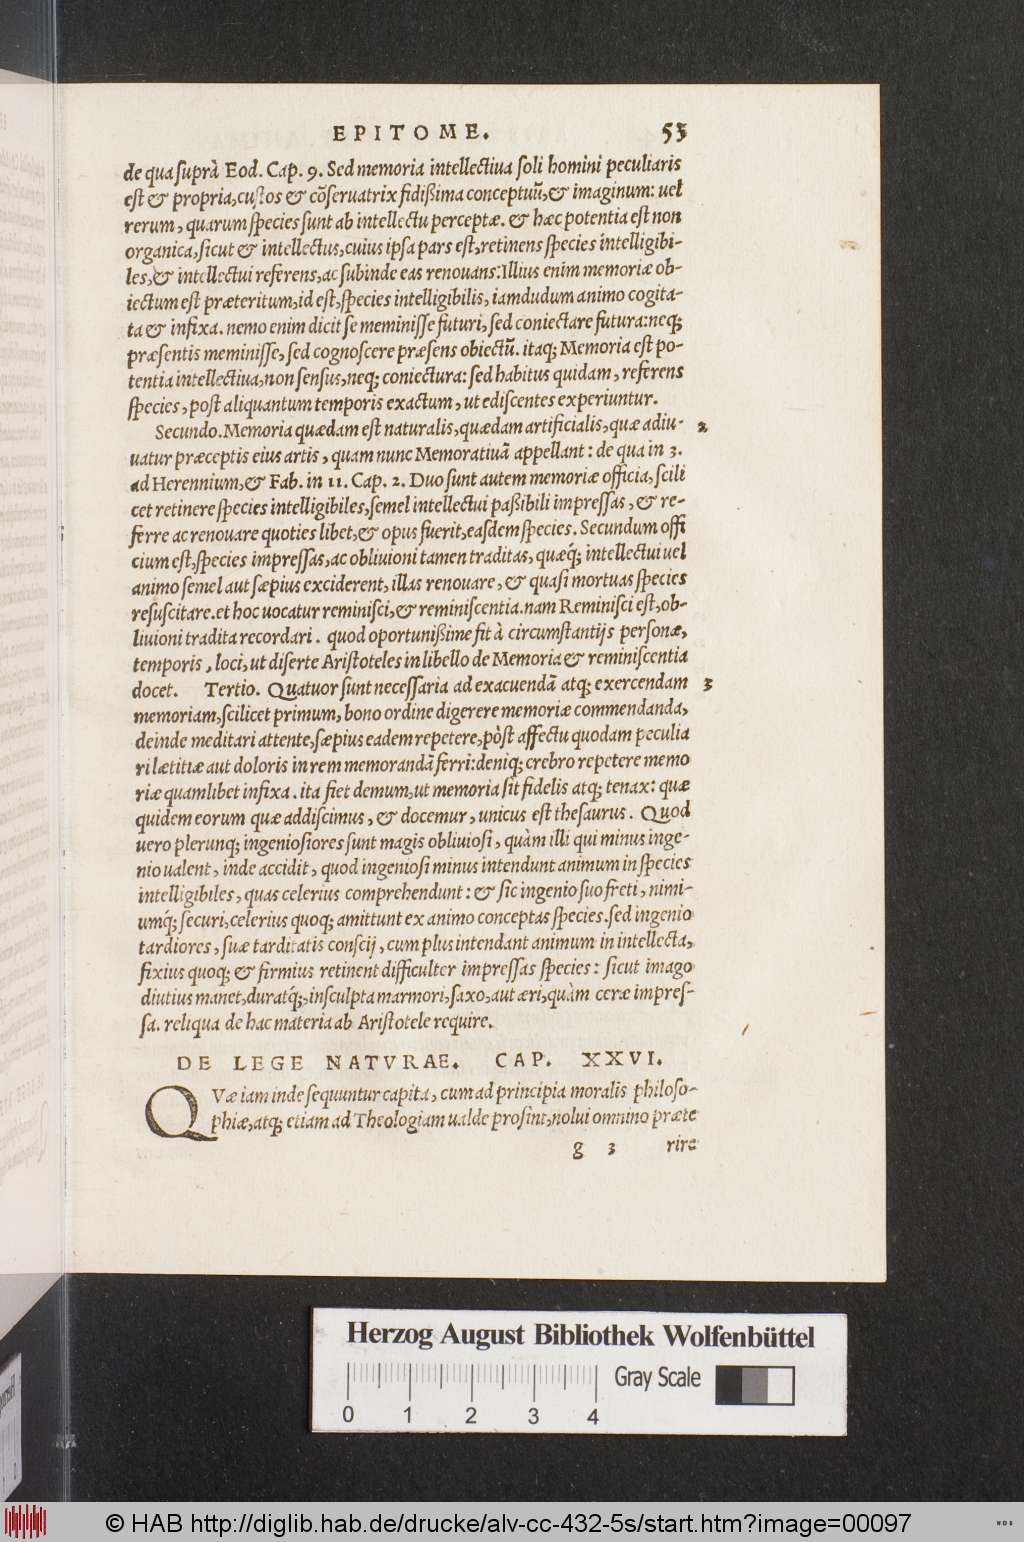 EPITOME. 53
de qua suprà Eod. Cap. 9. Sed memoria intellectiua soli homini peculiaris
est & propria, custos & cōseruatrix fidißima conceptuū, & imaginum: uel
rerum, quarum species sunt ab intellectu perceptæ. & hæc potentia est non
organica, sicut & intellectus, cuius ipsa pars est, retinens species intelligibi-
les, & intellectui referens, ac subinde eas renouans: Illius enim memoriæ ob-
iectum est præteritum, id est, species intelligibilis, iamdudum animo cogita-
ta & infixa. nemo enim dicit se meminisse futuri, sed coniectare futura: neq;
præsentis meminisse, sed cognoscere præsens obiectū. itaq; Memoria est po-
tentia intellectiua, non sensus, neq; coniectura: sed habitus quidam, referens
species, post aliquantum temporis exactum, ut ediscentes experiuntur.
Secundo. Memoria quædam est naturalis, quædam artificialis, quæ adiu- 2
uatur præceptis eius artis, quam nunc Memoratiuā appellant: de qua in 3.
ad Herennium, & Fab. in 11. Cap. 2. Duo sunt autem memoriæ officia, scili
cet retinere species intelligibiles, semel intellectui paßibili impressas, & re-
ferre ac renouare quoties libet, & opus fuerit, easdem species. Secundum offi
cium est, species impressas, ac obliuioni tamen traditas, quæq́; intellectui uel
animo semel aut sæpius exciderent, illas renouare, & quasi mortuas species
resuscitare. et hoc uocatur reminisci, & reminiscentia. nam Reminisci est, ob-
liuioni tradita recordari. quod oportunißime fit à circumstantijs personæ,
temporis, loci, ut diserte Aristoteles in libello de Memoria & reminiscentia
docet. Tertio. Quatuor sunt necessaria ad exacuendā atq; exercendam 3
memoriam, scilicet primum, bono ordine digerere memoriæ commendanda,
deinde meditari attente, sæpius eadem repetere, pòst affectu quodam peculia
ri lætitiæ aut doloris in rem memorandā ferri: deniq; crebro repetere memo
riæ quamlibet infixa. ita fiet demum, ut memoria sit fidelis atq; tenax: quæ
quidem eorum quæ addiscimus, & docemur, unicus est thesaurus. Quod
uero plerunq; ingeniosiores sunt magis obliuiosi, quàm illi qui minus inge-
nio ualent, inde accidit, quod ingeniosi minus intendunt animum in species
intelligibiles, quas celerius comprehendunt: & sic ingenio suo freti, nimi-
umq́; securi, celerius quoq; amittunt ex animo conceptas species. sed ingenio
tardiores, suæ tarditatis conscij, cum plus intendant animum in intellecta,
fixius quoq; & firmius retinent difficulter impressas species: sicut imago
diutius manet, duratq́;, insculpta marmori, saxo, aut æri, quàm ceræ impres-
sa. reliqua de hac materia ab Aristotele require.
DE LEGE NATVRAE. CAP. XXVI.
QVæ iam inde sequuntur capita, cum ad principia moralis philoso-
phiæ, atq; etiam ad Theologiam ualde prosint, nolui omnino præte
g 3 rire
Herzog August Bibliothek Wolfenbüttel
Gray Scale
0 1 2 3 4
© HAB http://diglib.hab.de/drucke/alv-cc-432-5s/start.htm?image=00097